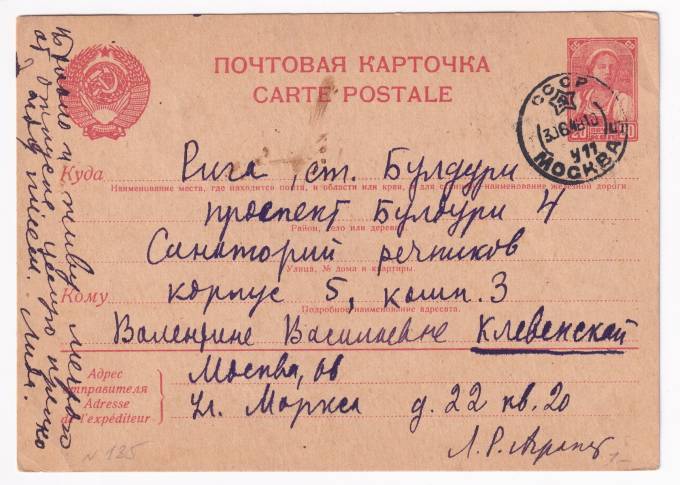 ПОЧТОВАЯ КАРТОЧКА
CARTE POSTALE
СССР
МОСКВА
20
Куда Рига, ст. Булдури
Наименование места, где находится почта, и области или края, а для станции - наименование железной дороги
проспект Булдури 4
Район, село или деревня
Санаторий речников
Улица, № дома и квартиры
Кому корпус 5, комн. 3
Подробное наименование адресата
Валентине Васильевне Клевенской
Адрес отправителя
Adresse de l'expéditeur
Москва, 66
ул. Маркса д. 22 кв. 20
Л. Р.
N 135
живу
от отпуска
писем. Лида.